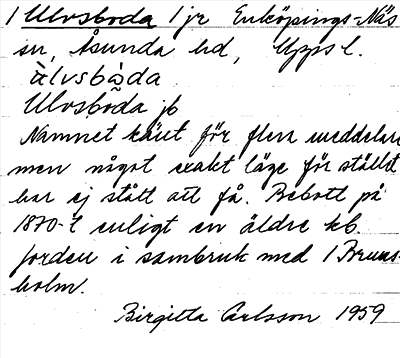 1 Ulvsboda 1 jr Enköpings-Näs
sn, Åsunda hd, Upps l.
ùlvsbòda
Ulvsboda jb
Namnet känt för flera meddelare
men något exakt läge för stället
har ej stått att få. Bebott på
1870-t enligt en äldre kb.
Jorden i sambruk med 1 Bruns-
holm.
Birgitta Carlsson 1959